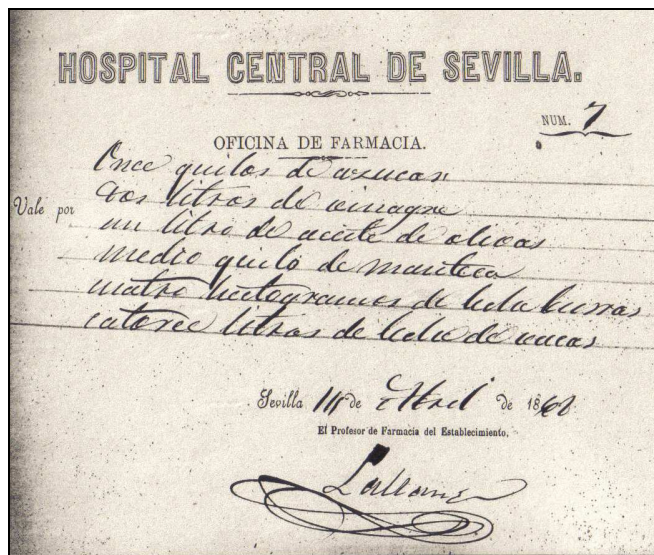 HOSPITAL CENTRAL DE SEVILLA.
NUM. 7
OFICINA DE FARMACIA.
Once quilos de azucar
Vale por dos litros de vinagre
un litro de aceite de olivas
medio quilo de manteca
cuatro hectogramos de leche burras
catorce litros de leche de vacas
Sevilla de Abril de 18
El Profesor de Farmacia del Establecimiento,